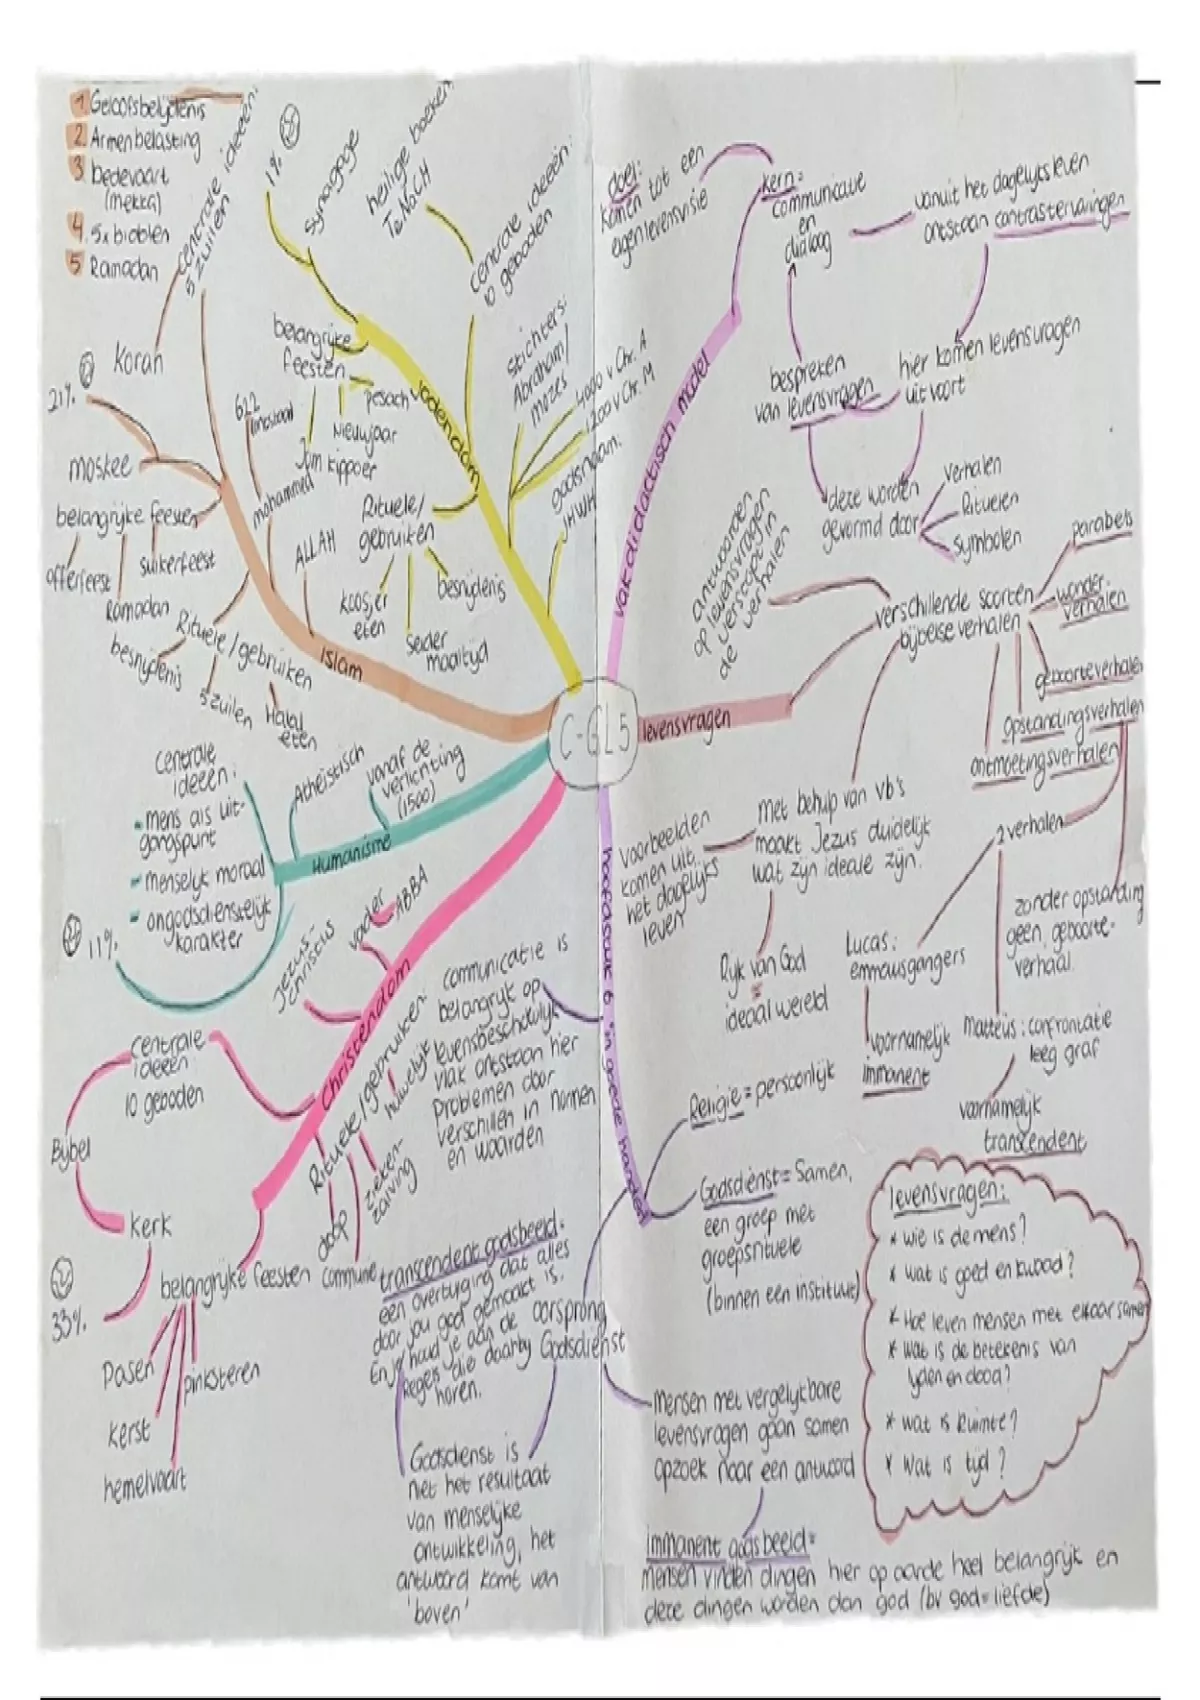 1 Geloofsbelijdenis
2 Armenbelasting
3 bedevaart
(mekka)
4. 5x bidden
5 Ramadan
centrale ideeën:
5 zuilen
Koran
21%
moskee
belangrijke feesten
offerfeest
Ramadan
suikerfeest
622
mohammed
ALLAH
Rituele/gebruiken
besnijdenis
5 zuilen
Halal
eten
Islam
1%
Synagoge
heilige boeken
TeNaCH
centrale ideeën:
10 geboden
belangrijke
feesten
pesach
Nieuwjaar
Jom kippoer
Jodendom
Stichters:
Abraham/
mozes
4000 v Chr. A
1200 v Chr. M
godsnaam:
JHWH
Rituele/
gebruiken
koosjer
eten
Seider
maaltijd
besnijdenis
C-GL5
centrale
ideeën:
- mens als uit-
gangspunt
- menselijk moraal
- ongodsdienstelijk
karakter
Atheïstisch
vanaf de
verlichting
(1500)
Humanisme
11%
Jezus-
christus
vader
ABBA
Christendom
centrale
ideeën
10 geboden
Bijbel
kerk
33%
belangrijke feesten
Pasen
pinksteren
kerst
hemelvaart
Rituele/gebruiken
huwelijk
zieken-
zalving
doop
communie
vakdidactisch model
doel:
komen tot een
eigen levensvisie
kern:
communicatie
en
dialoog
vanuit het dagelijks leven
ontstaan contrastervaringen
hier komen levensvragen
uit voort
bespreken
van levensvragen
deze worden
gevormd door
verhalen
Rituelen
symbolen
levensvragen
antwoorden
op levensvragen
de verstopt in
verhalen
verschillende soorten
bijbelse verhalen
parabels
wonder-
verhalen
geboorteverhalen
opstandingsverhalen
ontmoetingsverhalen
met behulp van vb's
maakt Jezus duidelijk
wat zijn ideale zijn.
voorbeelden
komen uit
het dagelijks
leven
Rijk van God
=
ideaal wereld
2 verhalen
zonder opstanding
geen geboorte-
verhaal.
Lucas:
emmausgangers
voornamelijk
immanent
Matteüs: confrontatie
leeg graf
voornamelijk
transcendent
hoofdstuk 6 'in goede handen'
communicatie is
belangrijk op
levensbeschouwlijk
vlak ontstaan hier
problemen door
verschillen in normen
en waarden
Religie = persoonlijk
Godsdienst = samen,
een groep met
groepsrituele
(binnen een instituut)
oorsprong
Godsdienst
transcendent godsbeeld:
een overtuiging dat alles
door jou god gemaakt is.
En je houd je aan de
regels die daarbij
horen.
Godsdienst is
niet het resultaat
van menselijke
ontwikkeling, het
antwoord komt van
'boven'
Mensen met vergelijkbare
levensvragen gaan samen
opzoek naar een antwoord
immanent godsbeeld=
mensen vinden dingen hier op aarde heel belangrijk en
deze dingen worden dan god (bv god=liefde)
levensvragen:
* wie is de mens?
* wat is goed en kwaad?
* Hoe leven mensen met elkaar samen
* wat is de betekenis van
lijden en dood?
* wat is Ruimte?
* Wat is tijd?